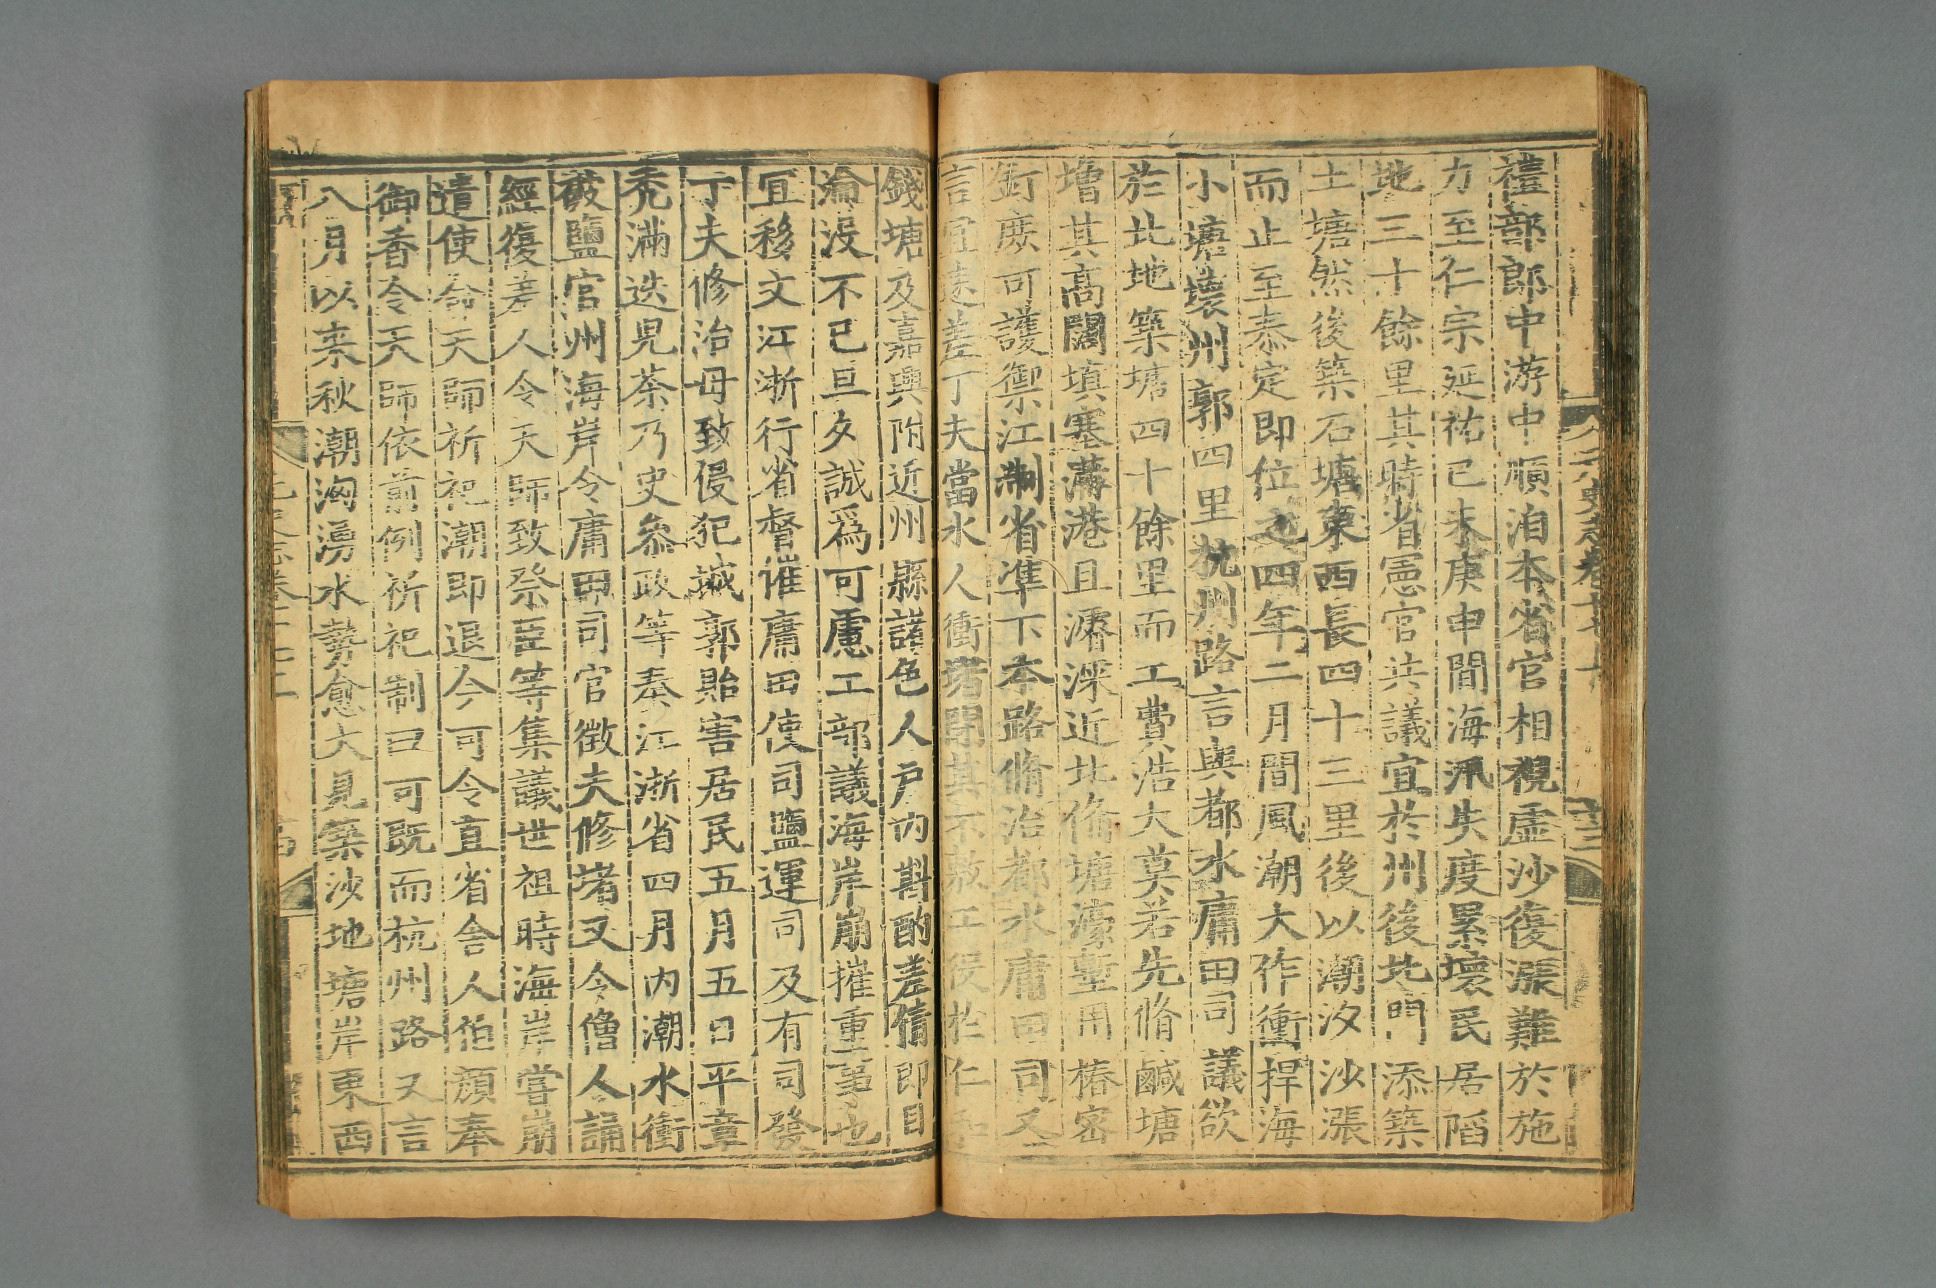 禮部郎中游中順洎本省官相視虛沙復漲難於施
力至仁宗延祐已未庚申間海汛失度累壞民居陷
地三十餘里其時省憲官共議宜於州後北門添築
土塘然後築石塘東西長四十三里後以潮汐沙漲
而止至泰定即位之四年二月間風潮大作衝捍海
小塘壞州郭四里杭州路言與都水庸田司議欲
於北地築塘四十餘里而工費浩大莫若先脩鹹塘
增其高闊填塞溝港且濬深近北備塘濠塹用樁密
釘庶可護禦江浙省準下本路脩治都水庸田司又
言宜速差丁夫當水入衝堵閉其不敷工役於仁和
錢塘及嘉興附近州縣諸色人戶內斟酌差倩即目
淪没不已旦夕誠爲可慮工部議海岸崩摧重事也
宜移文江浙行省督催庸田使司鹽運司及有司發
丁夫修治毋致侵犯城郭貽害居民五月五日平章
禿滿迭兒茶乃史參政等奏江浙省四月内潮水衝
破鹽官州海岸令庸田司官徵夫修堵又令僧人誦
經復差人令天師致祭臣等集議世祖時海岸嘗崩
遣使命天師祈祀潮即退今可令直省舍人伯顏奉
御香令天師依前例祈祀制曰可既而杭州路又言
八月以來秋潮洶湧水勢愈大見築沙地塘岸東西